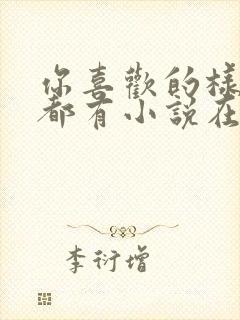 你喜歡的樣
都有小說在
李衍增